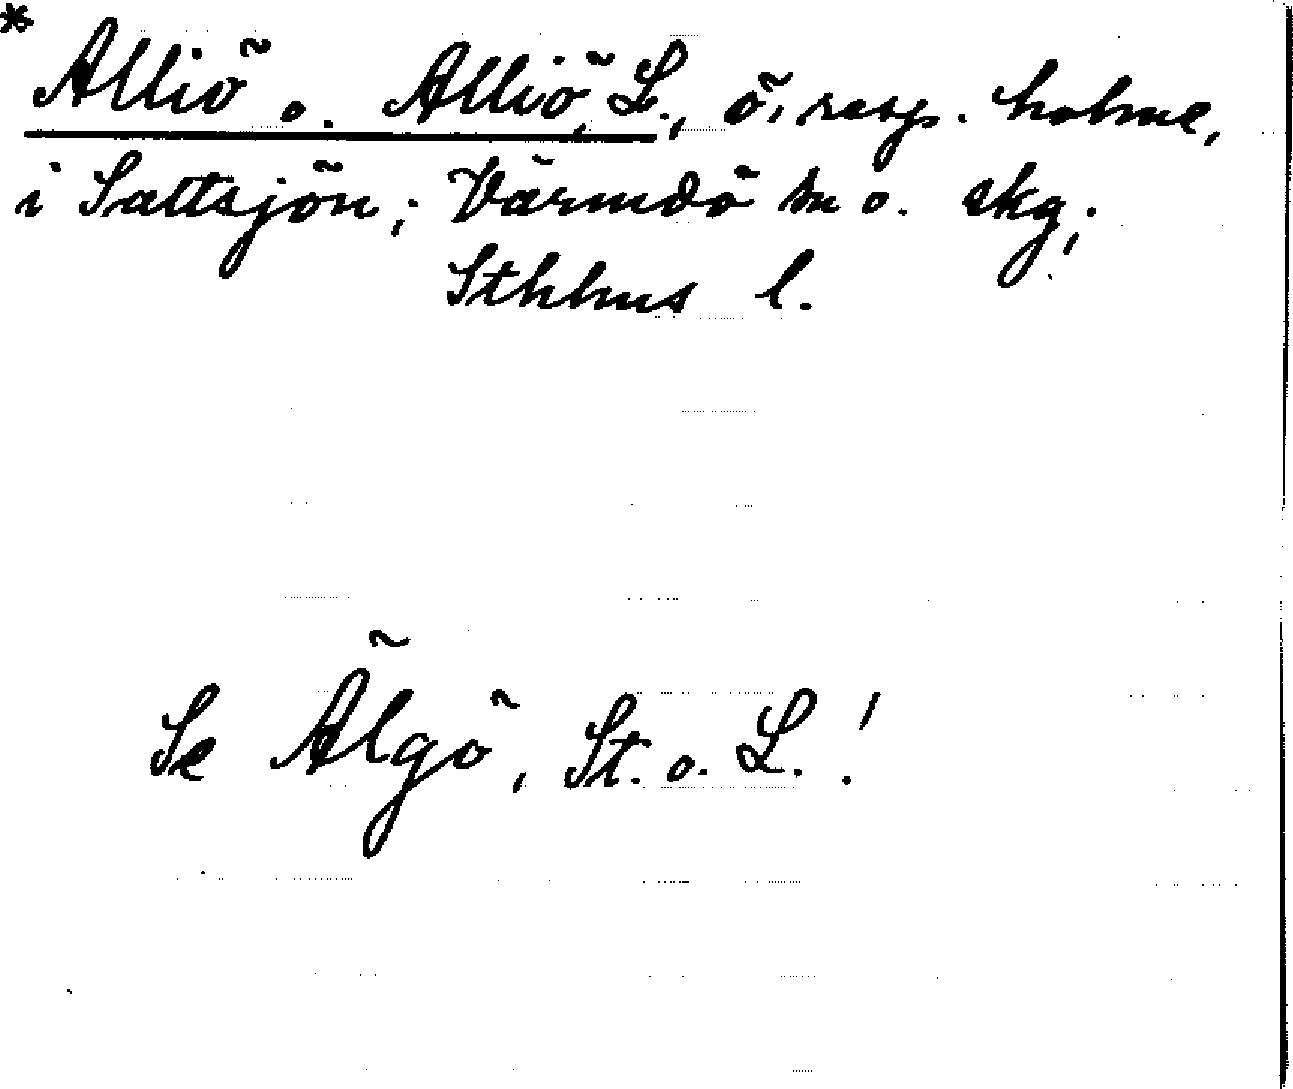 * Alliö o. Alliö, L., ö, resp. holme,
i Saltsjön; Värmdö sn o. skg,
Sthlms l.
Se Älgö, St. o. L.!